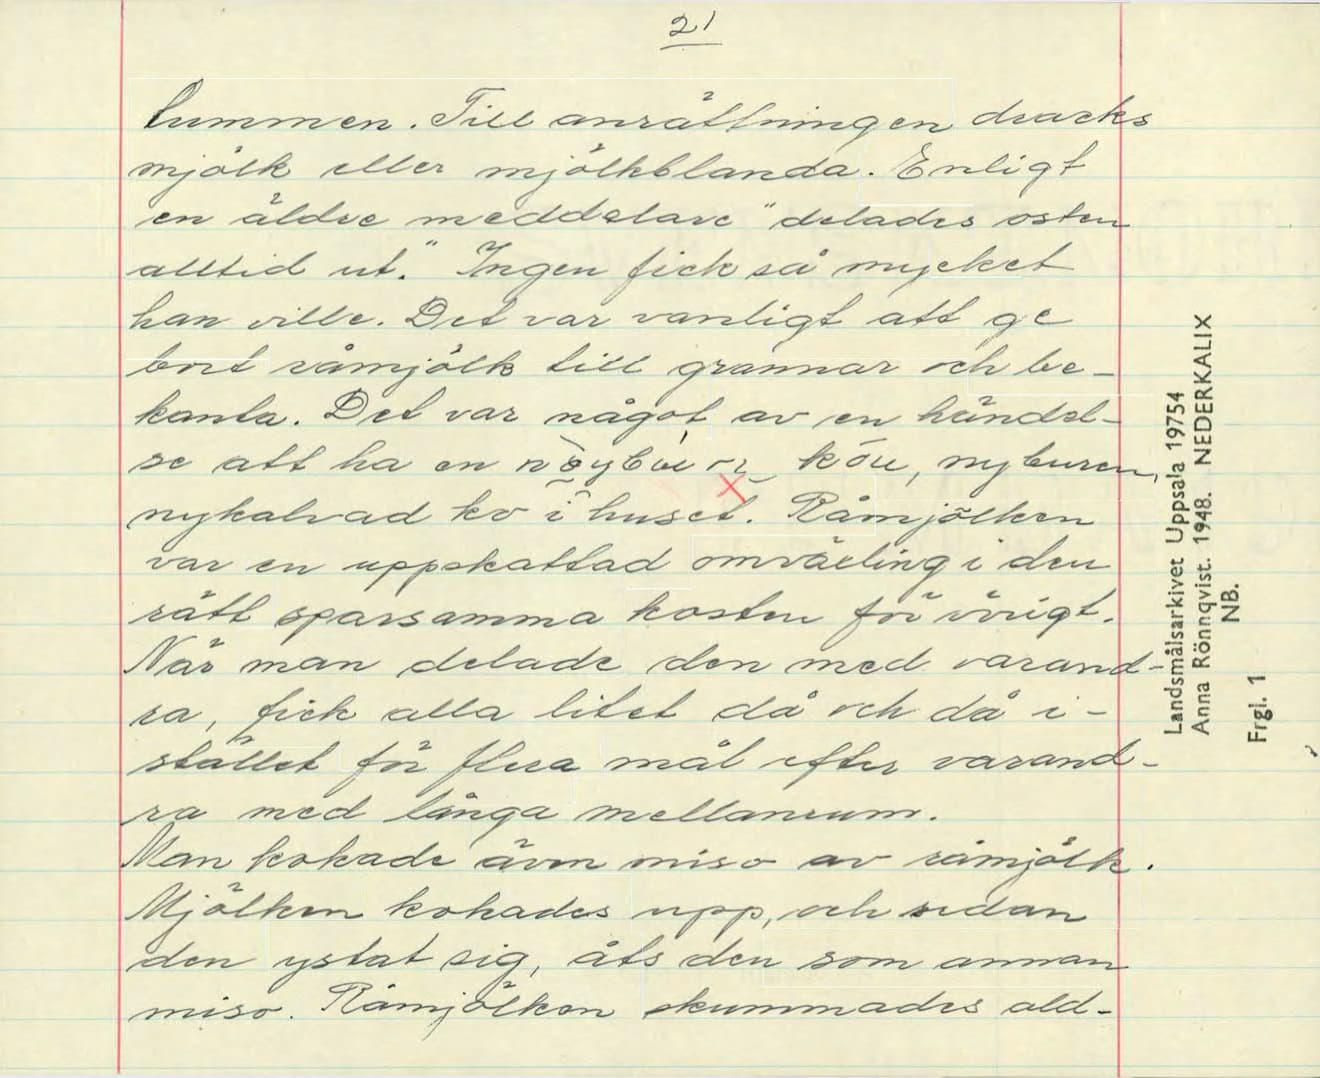 21
lummen. Till anrättningen dracks
mjölk eller mjölkblanda. Enligt
en äldre meddelare "delades osten
alltid ut." Ingen fick så mycket
han ville. Det var vanligt att ge
bort råmjölk till grannar och be-
kanta. Det var något av en händel-
se att ha en kóu, nyburen,
nykalvad ko i huset. Råmjölken
var en uppskattad omväxling i den
rätt sparsamma kosten för övrigt.
När man delade den med varand-
ra, fick alla litet då och då i-
stället för flera mål efter varand-
ra med långa mellanrum.
Man kokade även miso av råmjölk.
Mjölken kokades upp, och sedan
den ystat sig, åts den som annan
miso. Råmjölken skummades ald-
Landsmålsarkivet Uppsala 19754
Anna Rönnqvist. 1948. NEDERKALIX
NB.
Frgl. 1